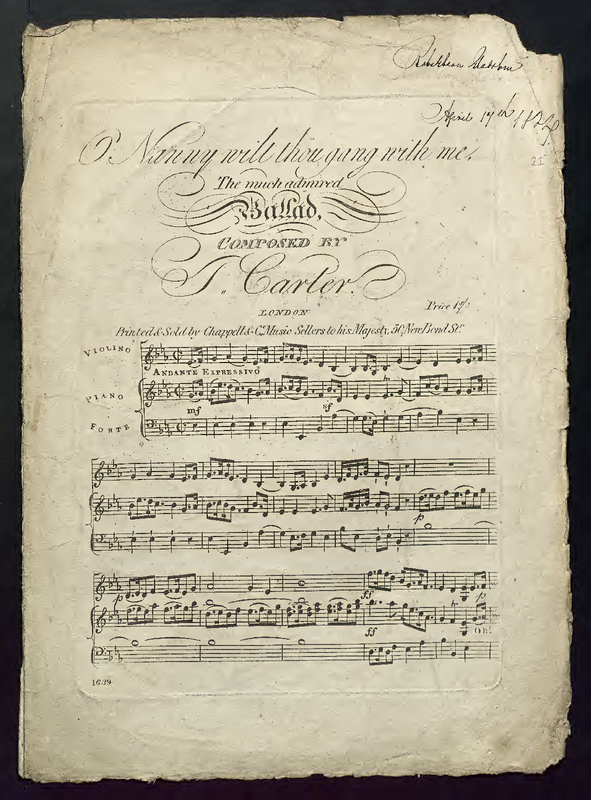 April 17th
O Nanny wilt thou gang with me.
The much admired
Ballad,
COMPOSED BY
T. Carter.
LONDON
Price 1/
Printed & Sold by Chappell & Co. Music Sellers to his Majesty, 50, New Bond St.
VIOLINO
ANDANTE EXPRESSIVO
PIANO
FORTE
mf
sf
p
p
ff
p
ff
Oh!
1639